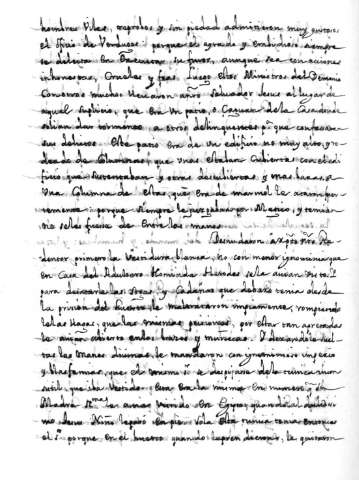 hombres Viles, reprobos y sin piedad admitieron muy gustosos
el oficio de Verdugos: porque el ayrado y embidioso siempre
se deleita en Executar su furor, aunque sea con acciones
inhonestas, Crueles y feas. Luego estos Ministros del Demonio
Con otros muchos llevaron a nro Salvador Jesus al lugar de
aquel suplicio, que era Un patio, o Caguan de la Casa donde
solian dar tormento a otros delinquentes pa que confesasen
sus delitos. Este patio era de Un edificio no muy alto, y ro
deado de Columnas, que Unas estaban Cubiertas con el edi
ficio que sustentaban y otras descubiertas, y mas baxas. A
Una Columna de estas, que era de marmol le ataron fuer
temente porque siempre le juzgaban por Magico, y temian
no se les fuese de Entre las manos
Desnudaron a xpto Nro Re
dentor primero la Vestidura blanca, no con menor ignominia que
en Casa del Adultero Homicida Herodes se la avian Vestido.
para desatarle las sogas y Cadenas que debaxo tenia desde
la prision del huerto le maltrataron impiamente, rompiendo
le las llagas, que las mismas prisiones, por estar tan apretadas
le avian abierto en los brazos y muñecas. Y dexandole suel
tas las Manos divinas, le mandaron con ignominioso imperio
y blasfemias, que el mismo se despojase de la tunica incon
sutil, que iba Vestido. Esta era la misma en numero que su
Madre SSma le avia Vestido en Egipto, quando al dulcissi
mo Jesus Niño le puso en pie. Sola esta tunica tenia entonces
el Sr porque en el huerto quando le prendieron, le quitaron